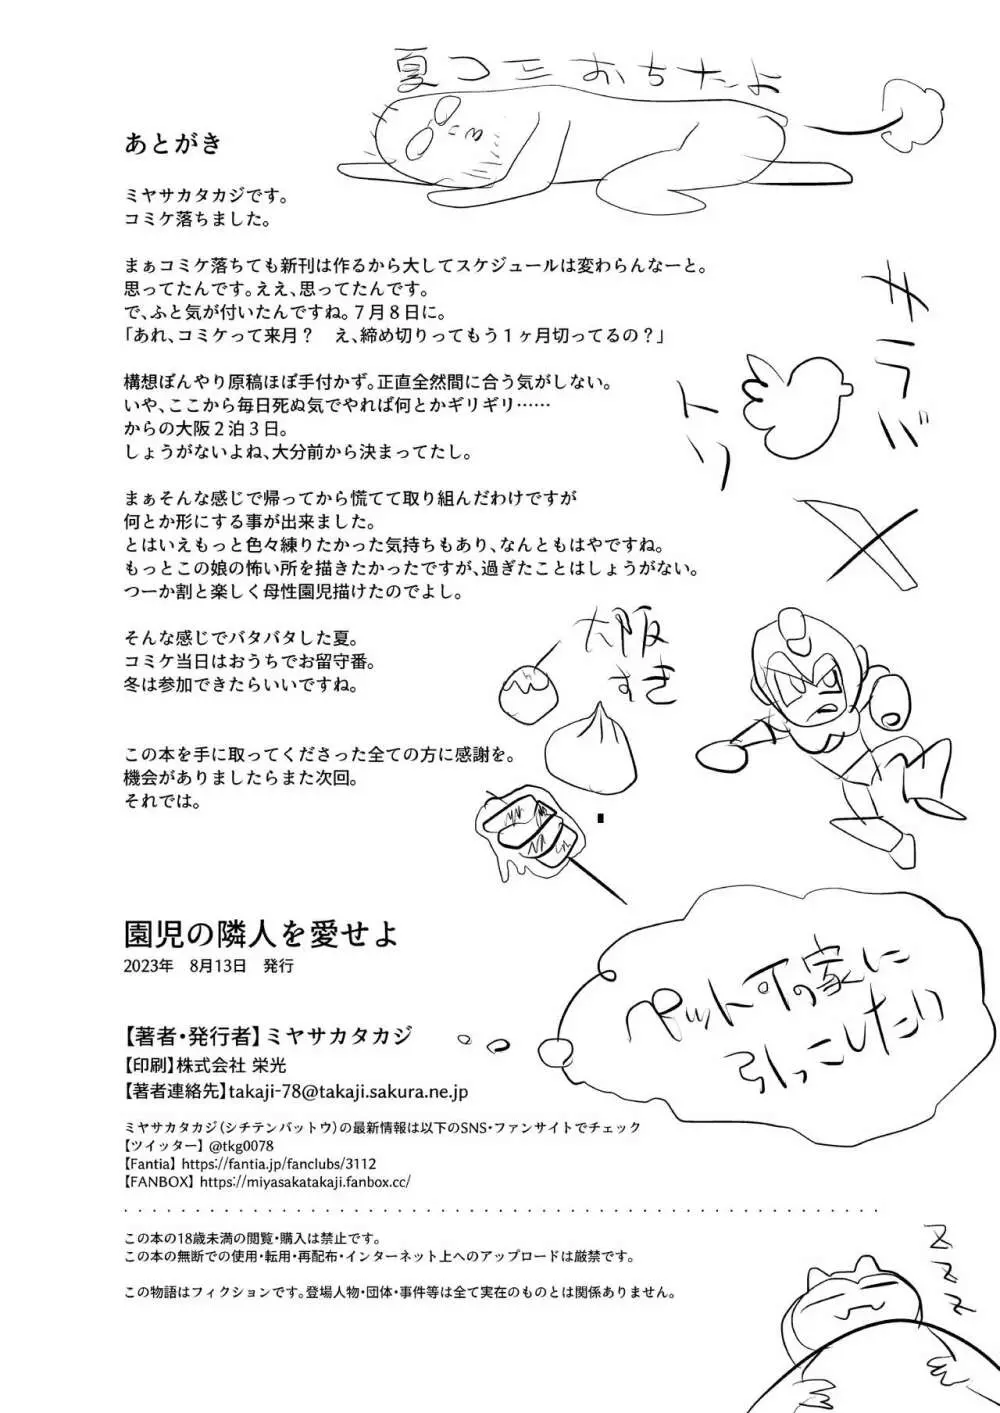 夏コミおちたよ
あとがき
ミヤサカタカジです。
コミケ落ちました。
まぁコミケ落ちても新刊は作るから大してスケジュールは変わらんなーと。
思ってたんです。ええ、思ってたんです。
で、ふと気が付いたんですね。７月８日に。
「あれ、コミケって来月？　え、締め切りってもう１ヶ月切ってるの？」
構想ぼんやり原稿ほぼ手付かず。正直全然間に合う気がしない。
いや、ここから毎日死ぬ気でやれば何とかギリギリ……
からの大阪２泊３日。
しょうがないよね、大分前から決まってたし。
サラバ
トリ
まぁそんな感じで帰ってから慌てて取り組んだわけですが
何とか形にする事が出来ました。
とはいえもっと色々練りたかった気持ちもあり、なんともはやですね。
もっとこの娘の怖い所を描きたかったですが、過ぎたことはしょうがない。
つーか割と楽しく母性園児描けたのでよし。
X
大阪
すき
そんな感じでバタバタした夏。
コミケ当日はおうちでお留守番。
冬は参加できたらいいですね。
この本を手に取ってくださった全ての方に感謝を。
機会がありましたらまた次回。
それでは。
園児の隣人を愛せよ
2023年　8月13日　発行
ペット可の家に
引っこしたい
【著者・発行者】ミヤサカタカジ
【印刷】株式会社 栄光
【著者連絡先】takaji-78@takaji.sakura.ne.jp
ミヤサカタカジ（シチテンバットウ）の最新情報は以下のSNS・ファンサイトでチェック
【ツイッター】 @tkg0078
【Fantia】 https://fantia.jp/fanclubs/3112
【FANBOX】 https://miyasakatakaji.fanbox.cc/
この本の18歳未満の閲覧・購入は禁止です。
この本の無断での使用・転用・再配布・インターネット上へのアップロードは厳禁です。
この物語はフィクションです。登場人物・団体・事件等は全て実在のものとは関係ありません。
Z
Z
Z
Z